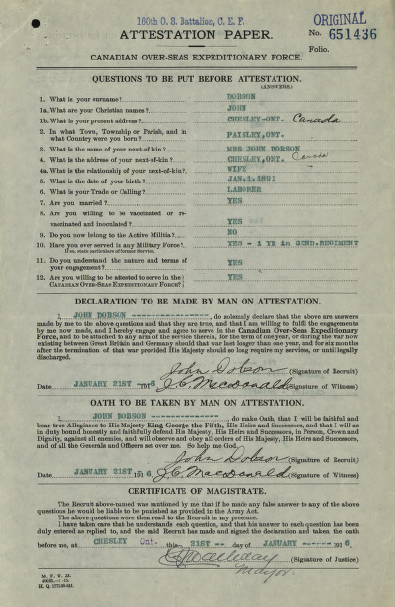 160th O. S. Battalion, C. E. F.
ORIGINAL
ATTESTATION PAPER.
No. 651436
Folio.
CANADIAN OVER-SEAS EXPEDITIONARY FORCE.
QUESTIONS TO BE PUT BEFORE ATTESTATION.
(ANSWERS)
1. What is your surname? DOBSON
1a. What are your Christian names? JOHN
1b. What is your present address? CHESLEY-ONT. Canada
2. In what Town, Township or Parish, and in what Country were you born? PAISLEY, ONT.
3. What is the name of your next-of-kin? MRS JOHN DOBSON
4. What is the address of your next-of-kin? CHESLEY, ONT. Canada
4a. What is the relationship of your next-of-kin? WIFE
5. What is the date of your birth? JAN.1.1891
6. What is your Trade or Calling? LABORER
7. Are you married? YES
8. Are you willing to be vaccinated or re-vaccinated and inoculated? YES
9. Do you now belong to the Active Militia? NO
10. Have you ever served in any Military Force? YES - 1 YR in 32ND.REGIMENT
If so, state particulars of former Service.
11. Do you understand the nature and terms of your engagement? YES
12. Are you willing to be attested to serve in the CANADIAN OVER-SEAS EXPEDITIONARY FORCE? YES
DECLARATION TO BE MADE BY MAN ON ATTESTATION.
I, JOHN DOBSON, do solemnly declare that the above are answers
made by me to the above questions and that they are true, and that I am willing to fulfil the engagements
by me now made, and I hereby engage and agree to serve in the Canadian Over-Seas Expeditionary
Force, and to be attached to any arm of the service therein, for the term of one year, or during the war now
existing between Great Britain and Germany should that war last longer than one year, and for six months
after the termination of that war provided His Majesty should so long require my services, or until legally
discharged.
John Dobson (Signature of Recruit)
Date JANUARY 21ST 1916 J.C. MacDonald (Signature of Witness)
OATH TO BE TAKEN BY MAN ON ATTESTATION.
I, JOHN DOBSON, do make Oath, that I will be faithful and
bear true Allegiance to His Majesty King George the Fifth, His Heirs and Successors, and that I will as
in duty bound honestly and faithfully defend His Majesty, His Heirs and Successors, in Person, Crown and
Dignity, against all enemies, and will observe and obey all orders of His Majesty, His Heirs and Successors,
and of all the Generals and Officers set over me. So help me God.
John Dobson (Signature of Recruit)
Date JANUARY 21ST 1916 J.C. MacDonald (Signature of Witness)
CERTIFICATE OF MAGISTRATE.
The Recruit above-named was cautioned by me that if he made any false answer to any of the above
questions he would be liable to be punished as provided in the Army Act.
The above questions were then read to the Recruit in my presence.
I have taken care that he understands each question, and that his answer to each question has been
duly entered as replied to, and the said Recruit has made and signed the declaration and taken the oath
before me, at CHESLEY Ont. this 21ST day of JANUARY 1916.
(Signature of Justice)
Mayor
M. F. W. 23.